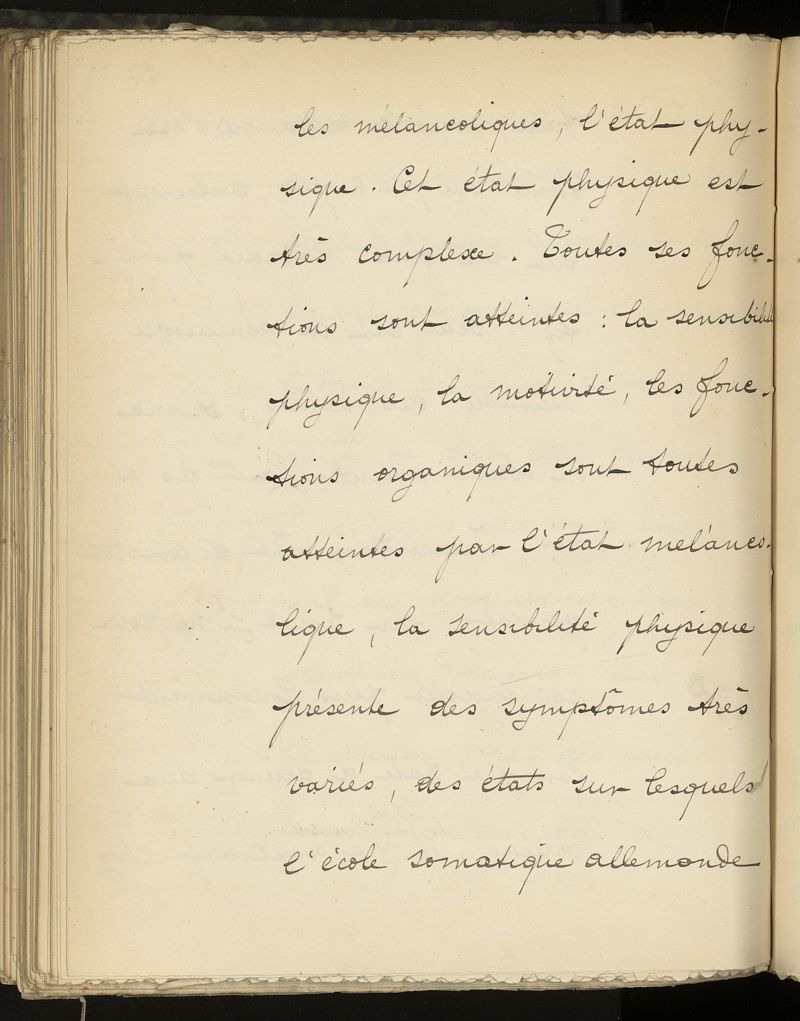 les mélancoliques, l'état phy-
sique. Cet état physique est
très complexe. Toutes ses fonc-
tions sont atteintes : la sensibilité
physique, la motivité, les fonc-
tions organiques sont toutes
atteintes par l'état melánco-
lique, la sensibilité physique
présente des symptômes très
variés, des états sur lesquels
l'école somatique allemande